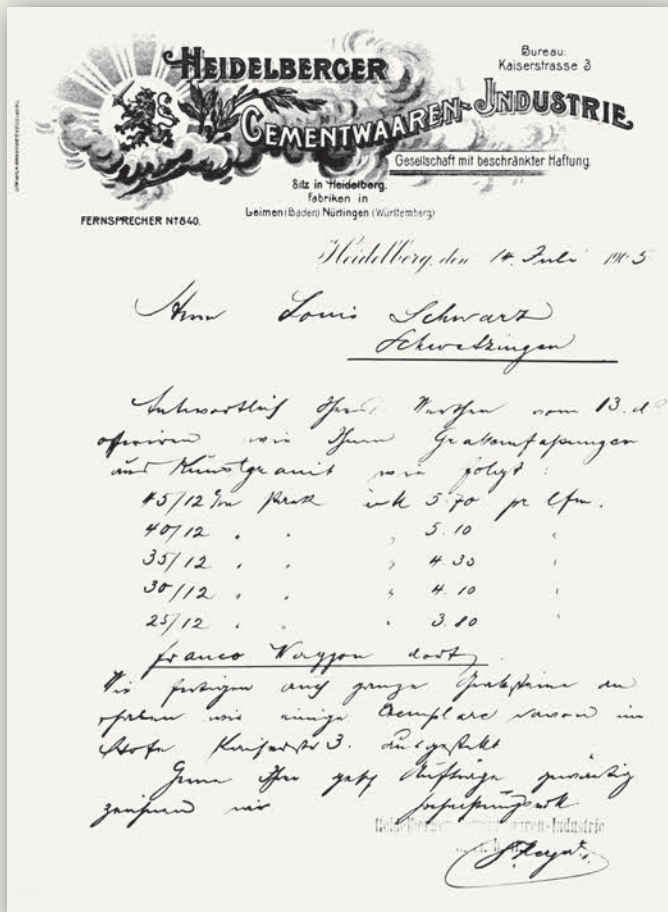 HEIDELBERGER
CEMENTWAAREN-INDUSTRIE
Bureau:
Kaiserstrasse 3
Gesellschaft mit beschränkter Haftung.
Sitz in Heidelberg.
Fabriken in
Leimen (Baden) Nürtingen (Württemberg)
FERNSPRECHER No 840.
Heidelberg, den 14. Juli 1905
Herrn Louis Schwarz
Schwetzingen
Antwortlich Ihres Werthen vom 13. d.
offeriren wir Ihnen Grabeinfaßungen
aus Kunstgranit wie folgt:
45/12 c/m stark mk 5.70 pr lfm.
40/12 " " " 5.10 "
35/12 " " " 4.30 "
30/12 " " " 4.10 "
25/12 " " " 3.80 "
franco Waggon dort.
Wir fertigen auch ganze Grabsteine an
haben wir einige Exemplare davon im
Hofe Kaiserstr 3. ausgestellt
Gerne Ihre gefl Aufträge gewärtig
zeichnen wir Hochachtungsvoll
Heidelberger Cementwaaren-Industrie